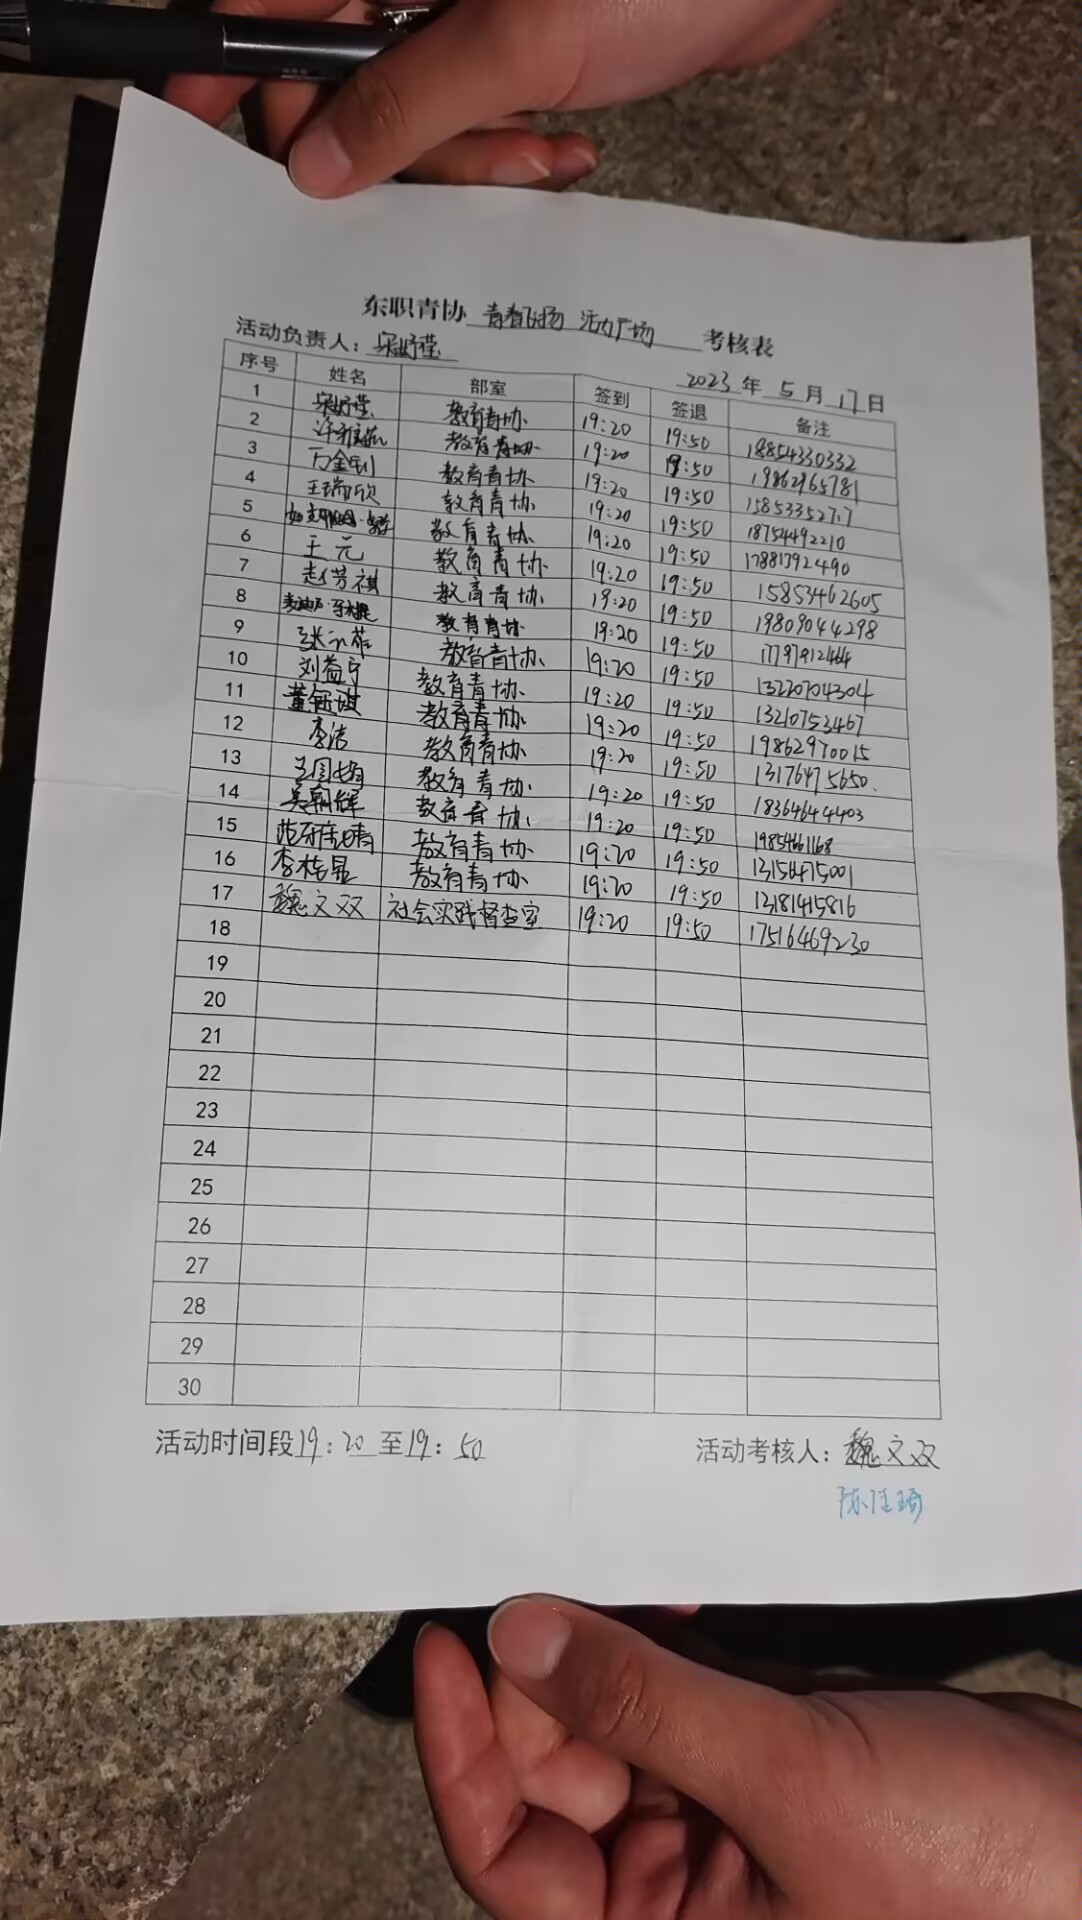 东职青协 青春飞扬 活力广场 考核表
活动负责人：宋妤莹
2023 年 5 月 17 日
序号 姓名 部室 签到 签退 备注
1 宋妤莹 教育青协 19:20 19:50 18854330332
2 教育青协 19:20 19:50 19862965781
3 万金钊 教育青协 19:20 19:50
4 王瑞欣 教育青协 19:20 19:50 18754492210
5 教育青协 19:20 19:50 17881392490
6 王元 教育青协 19:20 19:50 15853462605
7 赵芳祺 教育青协 19:20 19:50 19809044298
8 教育青协 19:20 19:50 17797912464
9 教育青协 19:20 19:50 13220704304
10 刘益宁 教育青协 19:20 19:50 13210753467
11 教育青协 19:20 19:50 19862970015
12 李洁 教育青协 19:20 19:50 13176475650.
13 教育青协 19:20 19:50 18364644403
14 吴朝辉 教育青协 19:20 19:50 19854661168
15 教育青协 19:20 19:50 13156475001
16 教育青协 19:20 19:50 13181415816
17 魏文双 社会实践督查室 19:20 19:50 17516469230
18
19
20
21
22
23
24
25
26
27
28
29
30
活动时间段19:20至19:50 活动考核人：魏文双
陈佳琦